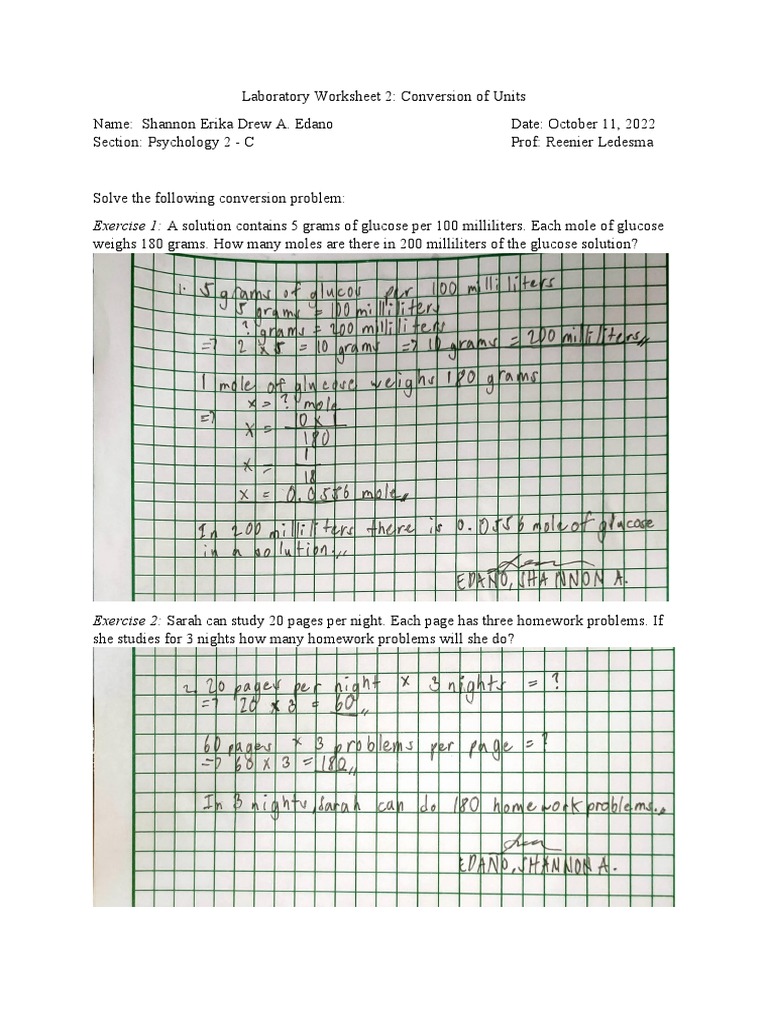 Laboratory Worksheet 2: Conversion of Units
Name: Shannon Erika Drew A. Edano Date: October 11, 2022
Section: Psychology 2 - C Prof: Reenier Ledesma
Solve the following conversion problem:
Exercise 1: A solution contains 5 grams of glucose per 100 milliliters. Each mole of glucose
weighs 180 grams. How many moles are there in 200 milliliters of the glucose solution?
1. 5 grams of glucos per 100 milliliters
5 grams = 100 milliliters
? grams = 200 milliliters
=> 2 x 5 = 10 grams => 10 grams = 200 milliliters,,
1 mole of glucose weighs 180 grams
x = ? mole
=> x = 10 x 1
180
x = 1
18
x = 0.0556 mole,,
In 200 milliliters there is 0.0556 mole of glucose
in a solution.,,
EDAÑO, SHANNON A.
Exercise 2: Sarah can study 20 pages per night. Each page has three homework problems. If
she studies for 3 nights how many homework problems will she do?
2. 20 pages per night x 3 nights = ?
=> 20 x 3 = 60,,
60 pages x 3 problems per page = ?
=> 60 x 3 = 180,,
In 3 nights, Sarah can do 180 homework problems.,,
EDAÑO, SHANNON A.